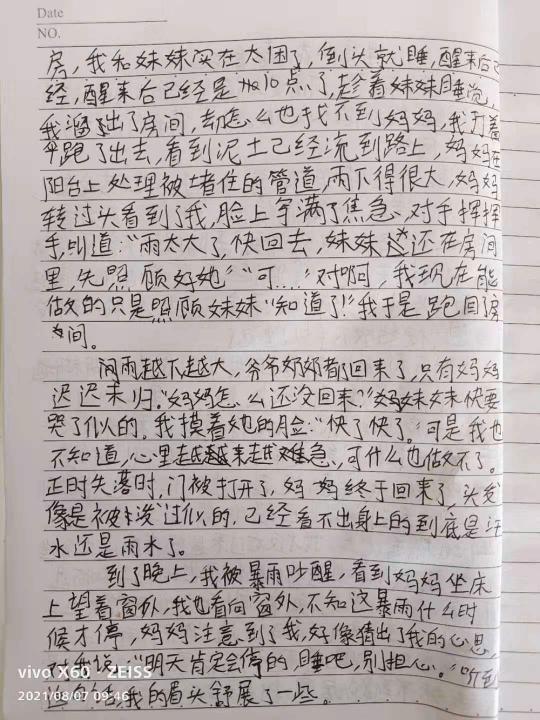 Date
NO.
房，我和妹妹实在太困了，倒头就睡，醒来后已
经，醒来后已经是 10点了，趁着妹妹睡觉，
我溜出了房间，却怎么也找不到妈妈，我打着
伞跑了出去，看到泥土已经流到路上，妈妈在
阳台上处理被堵住的管道，雨下得很大，妈妈
转过头看到了我，脸上写满了焦急，对手挥挥
手，叫道：“雨太大了，快回去，妹妹还在房间
里，先照顾好她”“可…”对啊，我现在能
做的只是照顾妹妹“知道了！”我于是跑回房
间。
雨越下越大，爷爷奶奶都回来了，只有妈妈
迟迟未归。“妈妈怎么还没回来？”妹妹快要
哭了似的。我摸着她的脸：“快了快了。”可是我也
不知道，心里越来越难急，可什么也做不了。
正时失落时，门被打开了，妈妈终于回来了，头发
像是被泼过似的，已经看不出身上的到底是汗
水还是雨水了。
到了晚上，我被暴雨吵醒，看到妈妈坐床
上望着窗外，我也看向窗外，不知这暴雨什么时
候才停，妈妈注意到了我，好像猜出了我的心思，
对我说：“明天肯定会停的，睡吧，别担心。”听到
这句话，我的眉头舒展了一些。
vivo X60 · ZEISS
2021/08/07 09:46